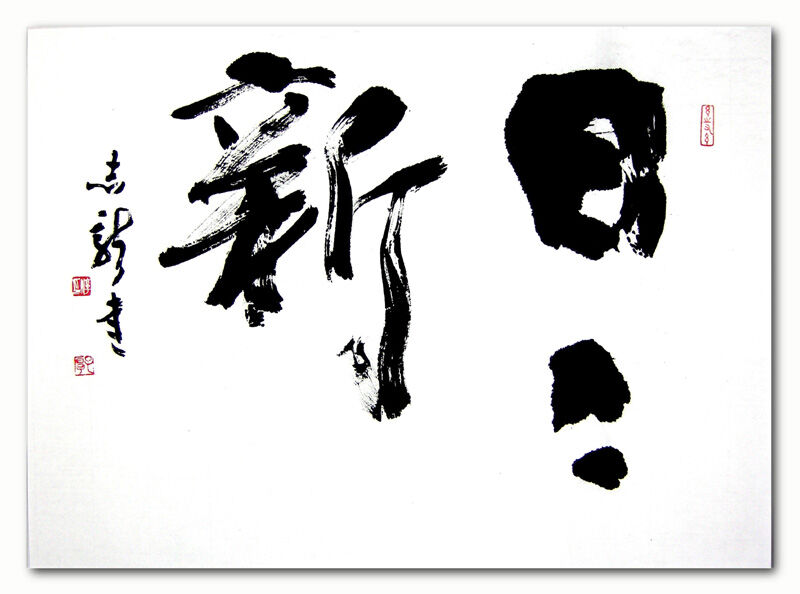 日〻
新
志龍書